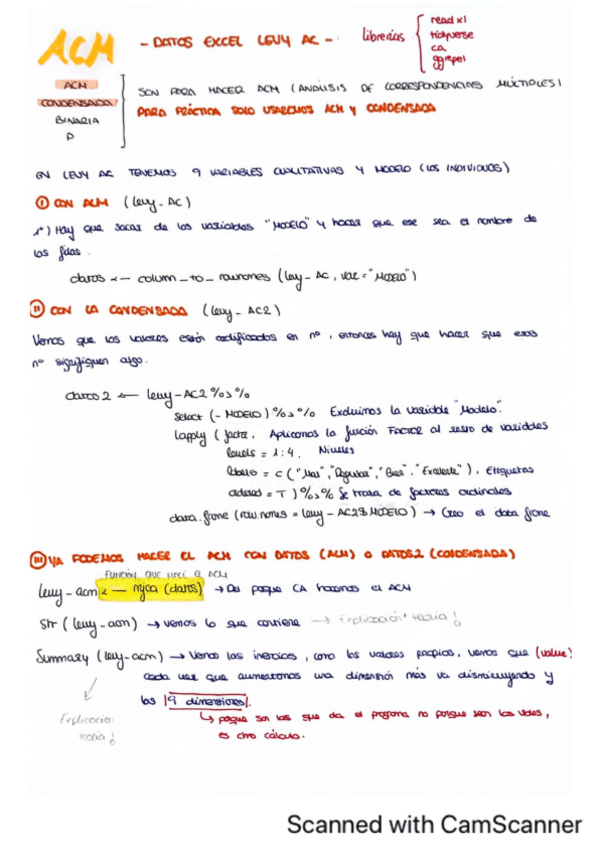 ACM
- DATOS EXCEL LEVY AC -
librerías
readxl
tidyverse
ca
ggrepel
ACM
CONDENSADA
BINARIA
P
SON PARA HACER ACM (ANÁLISIS DE CORRESPONDENCIAS MÚLTIPLES)
PARA PRÁCTICA SOLO USAREMOS ACM Y CONDENSADA
EN LEVY AC TENEMOS 9 VARIABLES CUALITATIVAS Y MODELO (LOS INDIVIDUOS)
I CON ACM (levy-AC)
1º) Hay que sacar de las variables "MODELO" y hacer que ese sea el nombre de
las filas.
datos <- column_to_rownames (levy-AC, var="MODELO")
II CON LA CONDENSADA (levy-AC2)
Vemos que los valores están codificados en nº, entonces hay que hacer que esos
nº signifiquen algo.
datos2 <- levy-AC2 %>%
Select (-MODELO) %>% Excluimos la variable "Modelo".
lapply (factor, Aplicamos la función FACTOR al resto de variables
levels = 1:4, Niveles
labels = c("Mal", "Regular", "Bien", "Excelente"), Etiquetas
ordered = T) %>% Se trata de factores ordinales
data.frame (row.names = levy-AC2$MODELO) → Creo el data frame
III YA PODEMOS HACER EL ACM CON DATOS (ACM) O DATOS2 (CONDENSADA)
FUNCIÓN QUE HACE EL ACM
levy-acm <- mjca (datos) → Del paquete CA hacemos el ACM
Str (levy-acm) → vemos lo que contiene → Explicación teoría!
Summary (levy-acm) → Vemos las inercias, como los valores propios, vemos que (value!)
cada vez que aumentamos una dimensión más va disminuyendo y
las 9 dimensiones.
Explicación
teoría!
↳ porque son las que da el programa no porque sean las útiles,
es otro cálculo.
Scanned with CamScanner